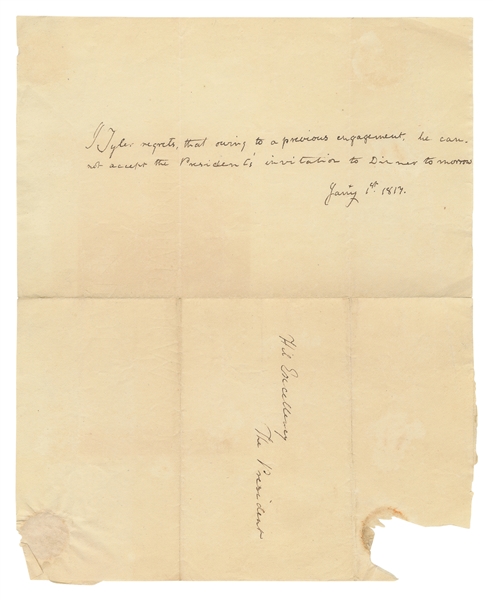 J Tyler regrets, that owing to a previous engagement, he can-
not accept the Presidents' invitation to Dinner tomorrow
Jany 1st. 1819.
His Excellency
The President